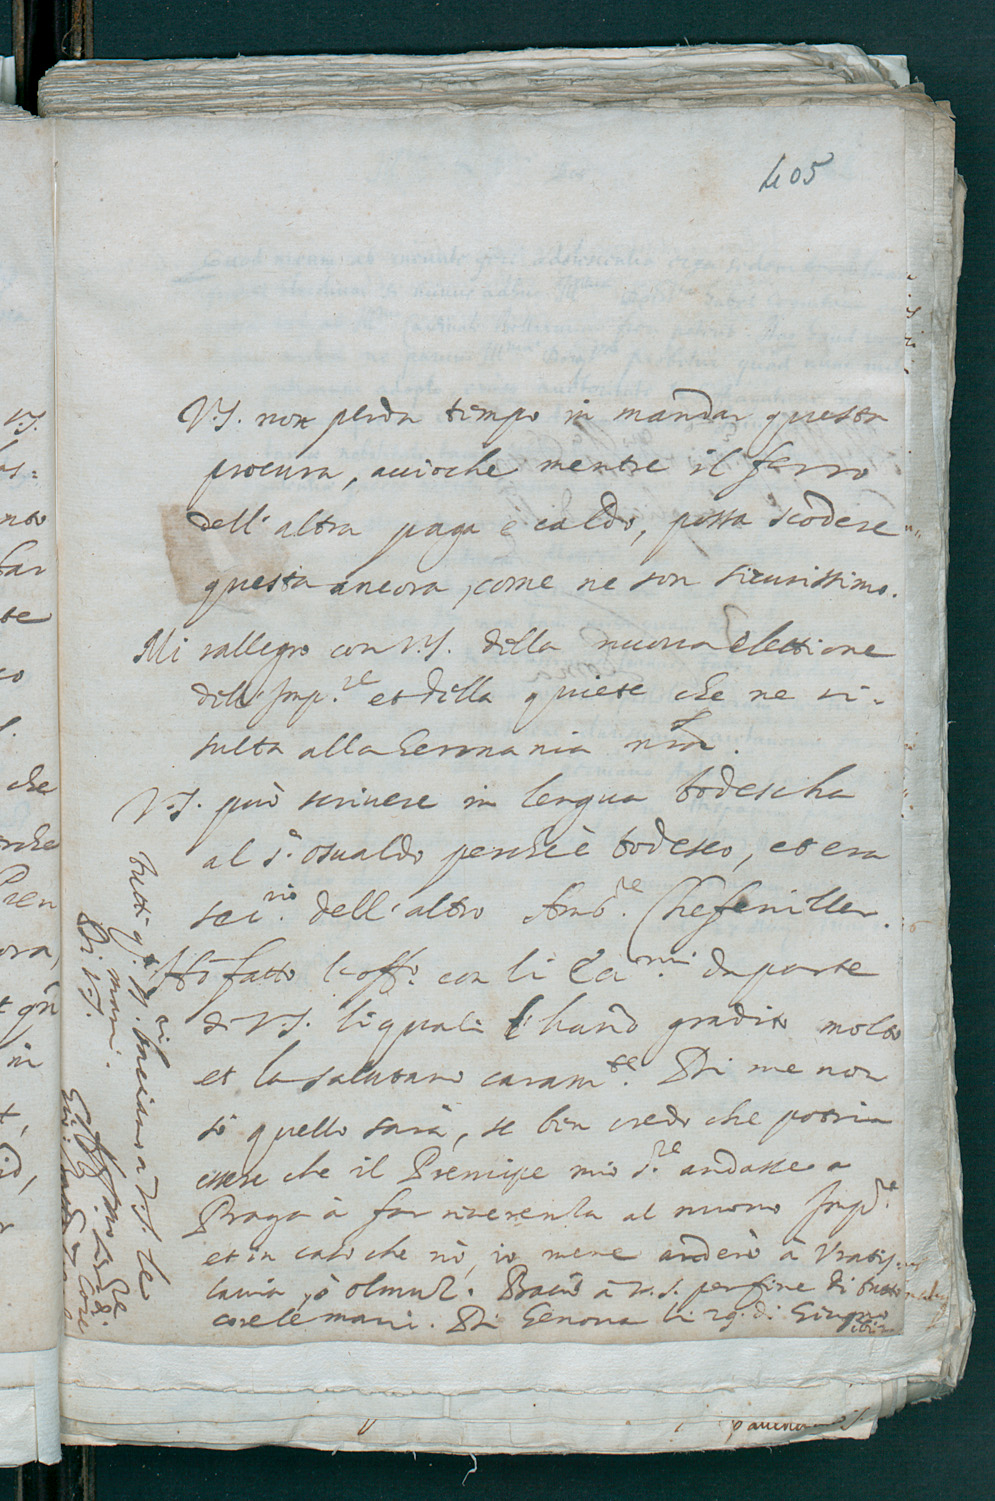 405
V.S. non perda tempo in mandar questa
procura, accioche mentre il ferro
dell'altra paga è caldo, possa scodere
questa ancora, come ne son sicurissimo.
Mi rallegro con V.S. della nuova Elettione
dell'Imp.re et della quiete che ne ri-
sulta alla Germania nra.
V.S. può scrivere in lengua todescha
al S.r Osualdo perchè è todesco, et era
dell'altro Amb.re
Hò fatto l'off.o con li da parte
di V.S. li quali l'hano gradito molto
et la salutano caram.te. Di me non
sò quello sarà, se ben credo che potria
essere che il Prencipe mio S.re andasse a
Praga à far riverenza al nuovo Imp.re
et in caso che nò, io mene anderò à Vratis-
lavia, ò Olmuz. Bacio à V.S. per fine di tutto
core le mani. Di Genova li 29. di Giugno
Tutti q.ti SS.ri baciano a V.S. le
mani.
Di V.S.